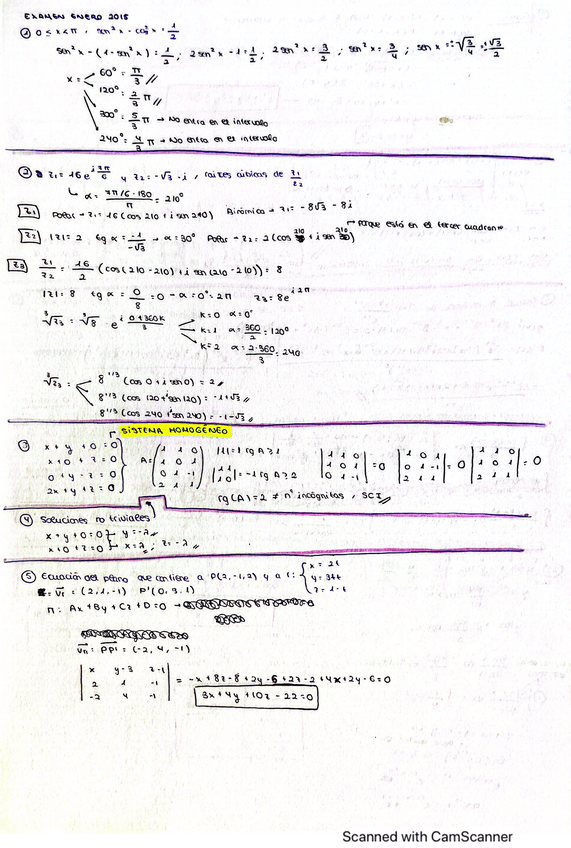 EXAMEN ENERO 2015
① 0 ≤ x < π , sen²x - cos²x = 1/2
sen²x - (1 - sen²x) = 1/2 ; 2sen²x - 1 = 1/2 ; 2sen²x = 3/2 ; sen²x = 3/4 ; sen x = ±√3/4 = ±√3/2
x = 60° = π/3
120° = 2/3 π
300° = 5/3 π → No entra en el intervalo
240° = 4/3 π → No entra en el intervalo
② z₁ = 16 e^i7π/6 y z₂ = -√3 - i , raíces cúbicas de z₁/z₂
α = 7π/6 · 180 / π = 210°
Z1 Polar → z₁ = 16 (cos 210 + i sen 210) Binómica → z₁ = -8√3 - 8i
Z2 |z| = 2 tg α = -1/-√3 → α = 30° Polar → z₂ = 2 (cos 210 + i sen 210) → Porque está en el tercer cuadrante
Z3 z₁/z₂ = 16/2 (cos (210 - 210) + i sen (210 - 210)) = 8
|z| = 8 tg α = 0/8 = 0 → α = 0° = 2π z₃ = 8e^i2π
³√z₃ = ³√8 · e^i 0+360K/3
K=0 α=0°
K=1 α = 360/2 = 120°
K=2 α = 2·360/3 = 240
³√z₃ = 8^1/3 (cos 0 + i sen 0) = 2
8^1/3 (cos 120 + i sen 120) = -1+√3
8^1/3 (cos 240 + i sen 240) = -1-√3
SISTEMA HOMOGÉNEO
③ x + y + 0 = 0
x + 0 + z = 0
0 + y - z = 0
2x + y + z = 0
A = (1 1 0
1 0 1
0 1 -1
2 1 1)
|1| = 1 rg A ≥ 1
|1 1
1 0| = -1 rg A ≥ 2
|1 1 0
1 0 1
0 1 -1| = 0
|1 1 0
0 1 -1
2 1 1| = 0
|1 1 0
1 0 1
2 1 1| = 0
rg (A) = 2 ≠ nº incógnitas , SCI
④ Soluciones no triviales
x + y + 0 = 0 y = -λ
x + 0 + z = 0 x = λ ; z = -λ
⑤ Ecuación del plano que contiene a P(2,-1,2) y a r:
x = 2t
y = 3+t
z = 1-t
Vr = (2,1,-1) P'(0,3,1)
π: Ax + By + Cz + D = 0 →
Vn = PP' = (-2, 4, -1)
|x y-3 z-1
2 1 -1
-2 4 -1| = -x + 8z - 8 + 2y - 6 + 2z - 2 + 4x + 2y - 6 = 0
3x + 4y + 10z - 22 = 0
Scanned with CamScanner